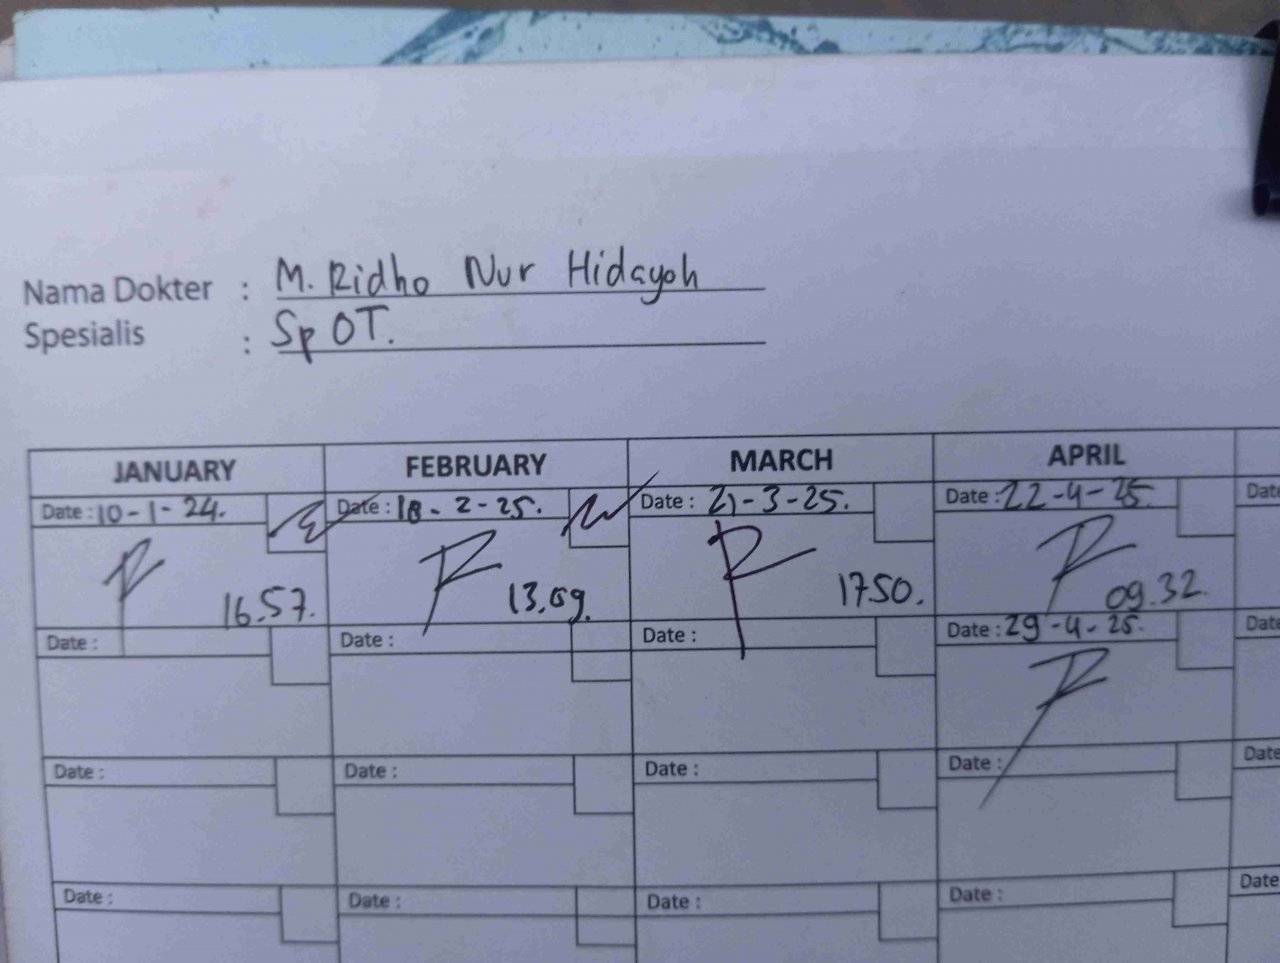 Nama Dokter : M. Ridho Nur Hidayah
Spesialis : Sp OT.
JANUARY FEBRUARY MARCH APRIL
Date : 10-1-24. Date : 18-2-25. Date : 21-3-25. Date : 22-4-25. Date
16.57. 13.09. 17.50. 09.32
Date : Date : Date : Date : 29-4-25. Date
Date : Date : Date : Date : Date
Date : Date : Date : Date : Date